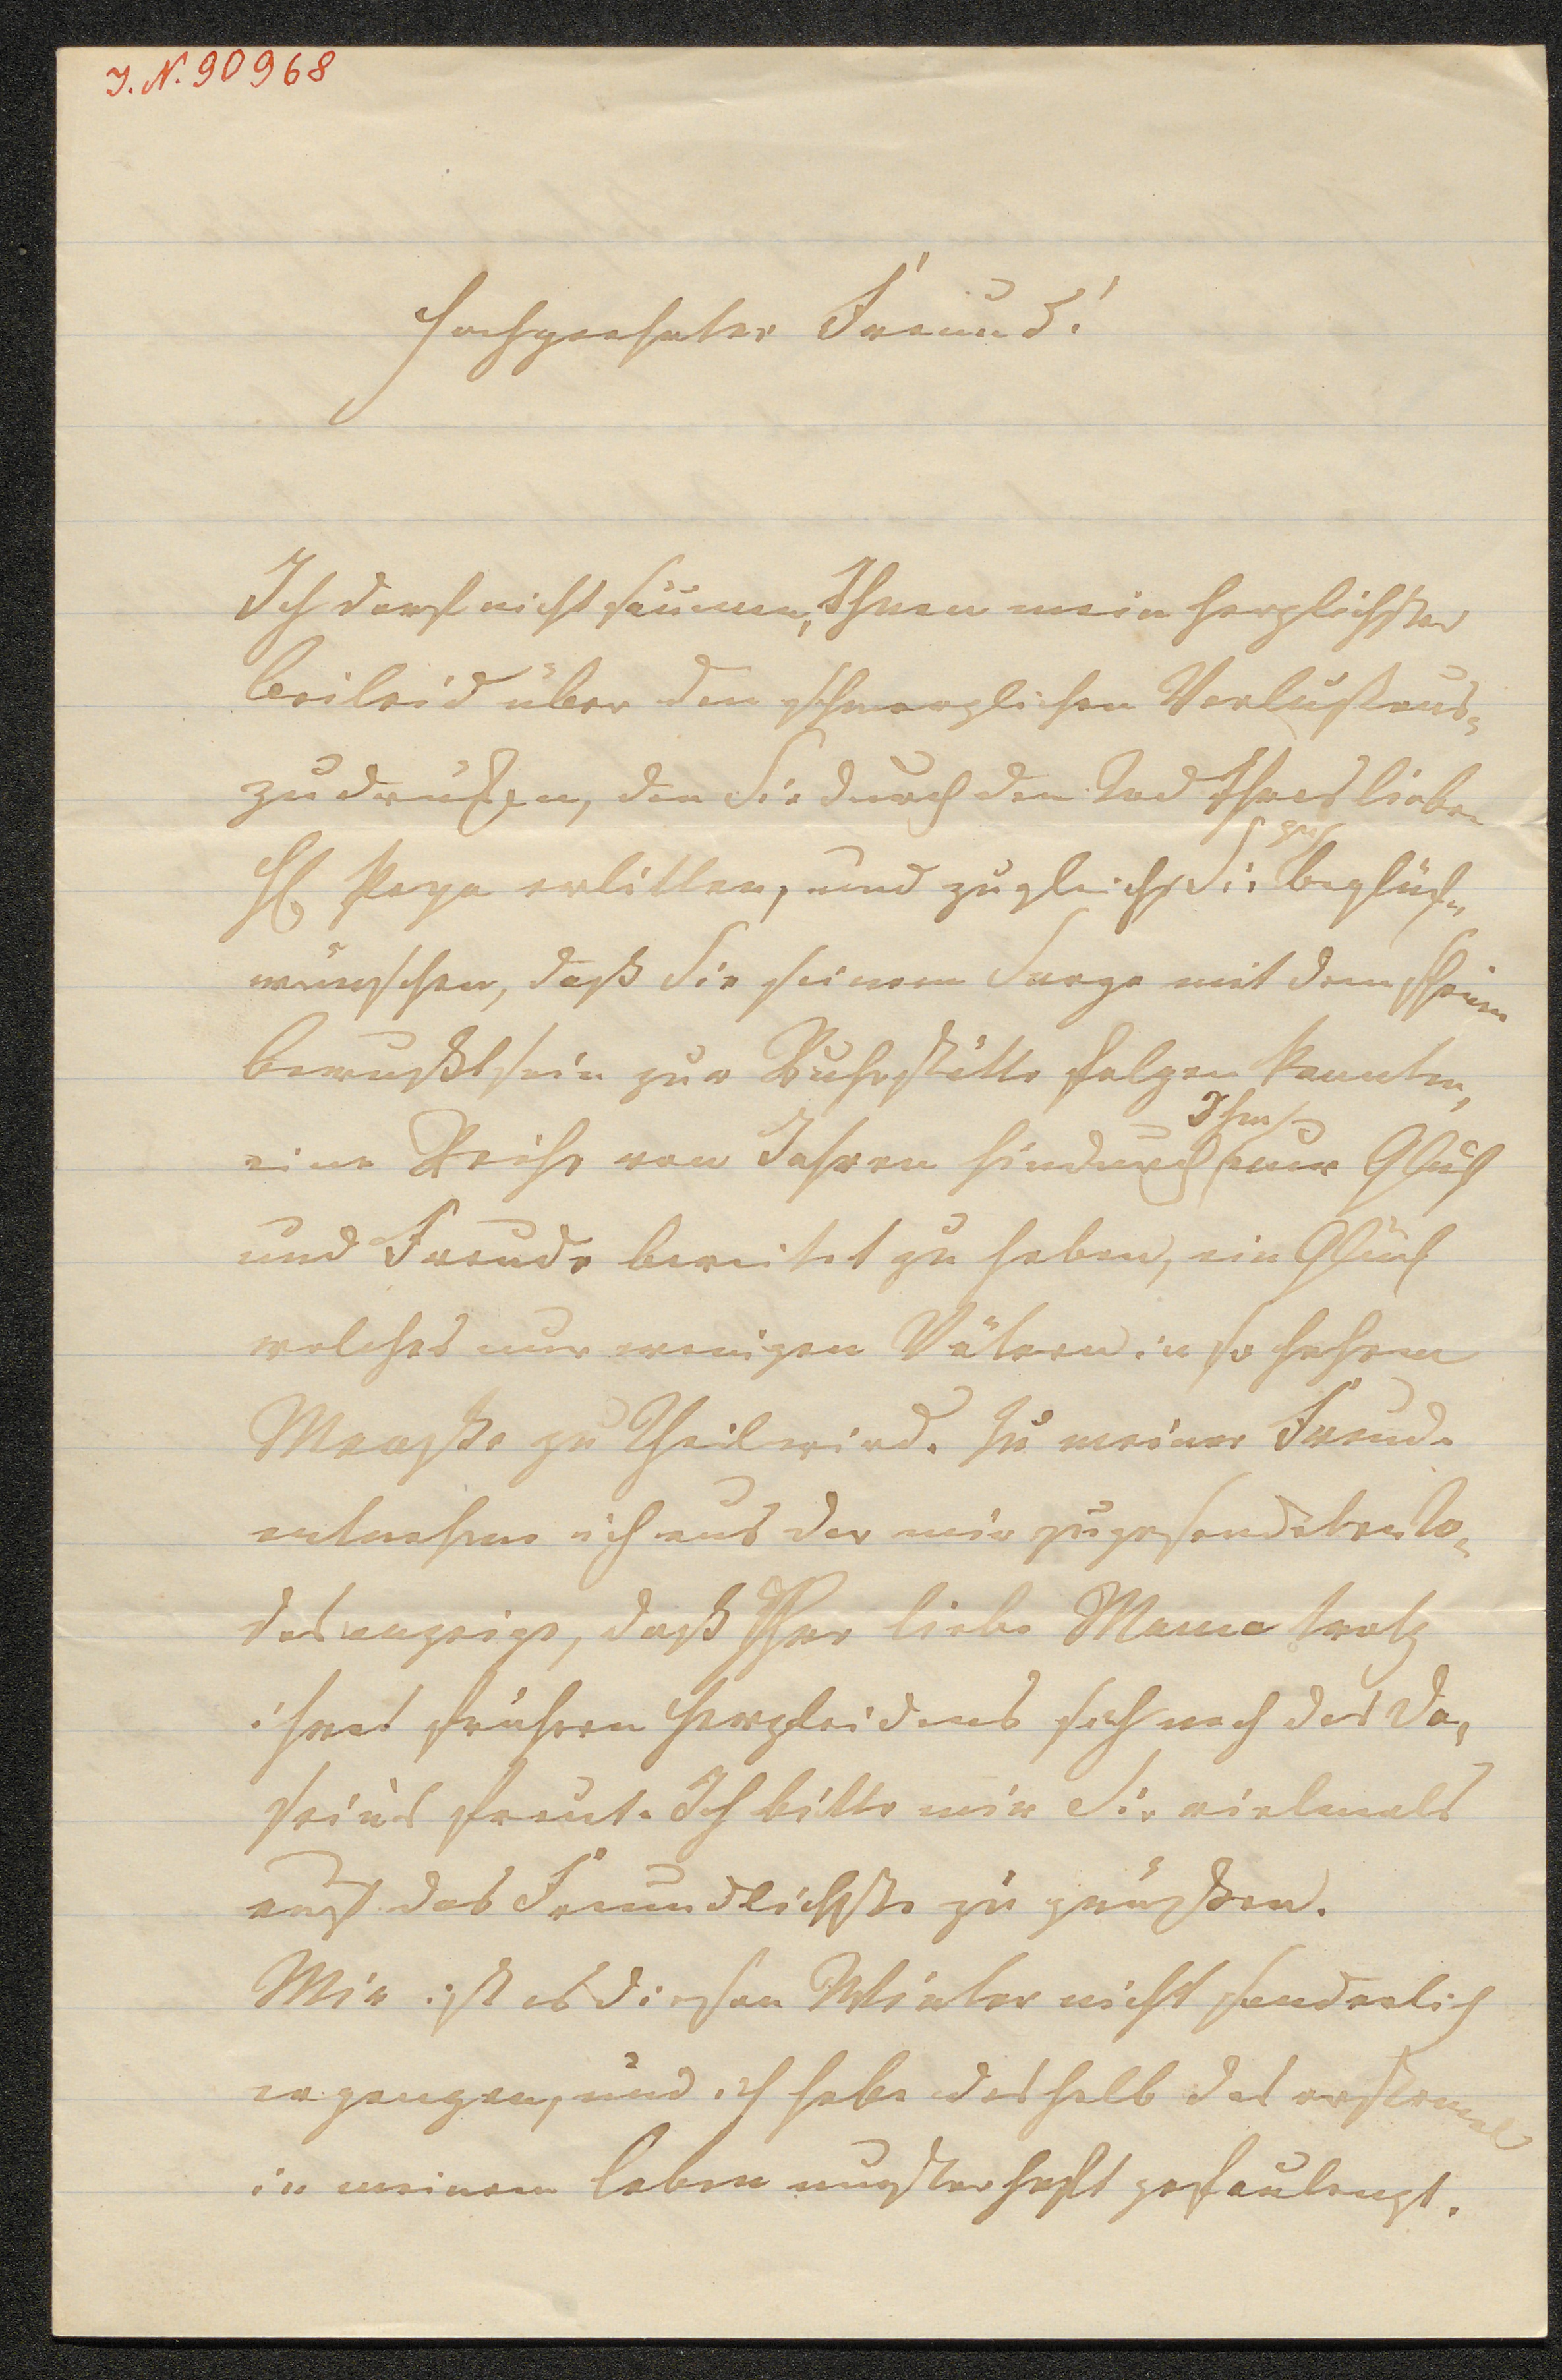 J. N. 90968
Hochgeehrter Freund!
Ich darf nicht säumen, Ihnen mein herzlichstes
Beileid über den schmerzlichen Verlust aus-
zudrücken, den Sie durch den Tod Ihres lieben
H Papa erlitten, und zugleich Sie beglück-
wünschen, daß Sie seinem Sarge mit dem
Bewußtsein zur Ruhestätte folgen konnten,
Ihm
eine Reihe von Jahren hindurch nur Glück
und Freude bereitet zu haben, ein Glück
welches nur wenigen Vätern in so hohem
Maaße zu Theil wird. Zu meiner Freude
entnehme ich aus der mir zugesendeten To-
desanzeige, daß Ihre liebe Mama trotz
ihres frühern Herzleidens sich noch des Da-
seins freut. Ich bitte mir Sie vielmals
auf das Freundlichste zu grüßen.
Mir ist es diesen Winter nicht sonderlich
ergangen, und ich habe deshalb das erstemal
in meinem Leben musterhaft gefaulenzt.